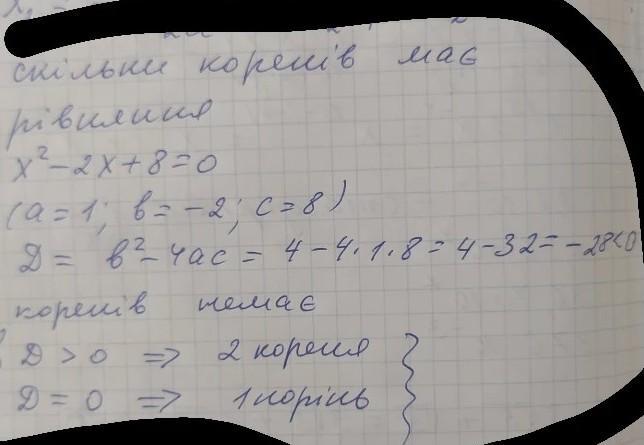 скільки коренів має
рівняння
x²-2x+8=0
(a=1; b=-2; c=8)
D = b²-4ac = 4-4·1·8 = 4-32 = -28<0
коренів немає
D > 0 => 2 кореня
D = 0 => 1 корінь